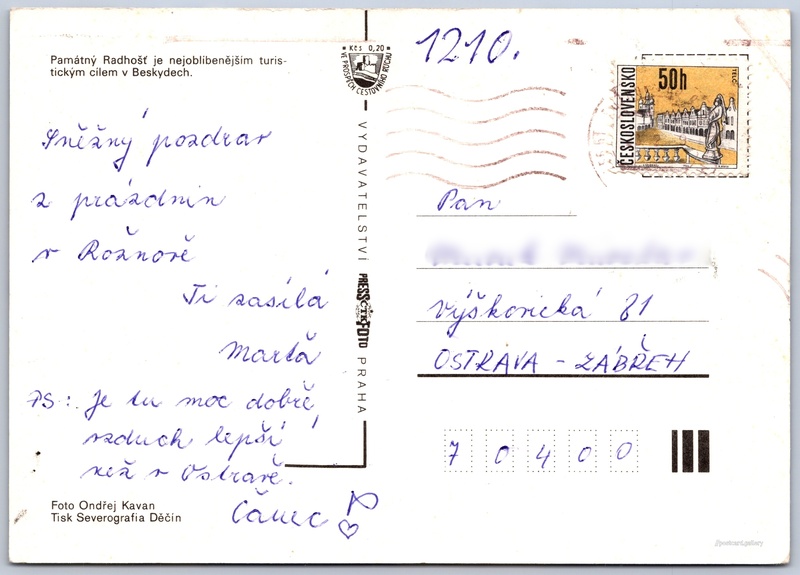 Památný Radhošť je nejoblíbenějším turis-
tickým cílem v Beskydech.
Kčs 0,20
VE PROSPĚCH CESTOVNÍHO RUCHU
1210.
ČESKOSLOVENSKO
50h
TELČ
Sněžný pozdrav
z prázdnin
v Rožnově
Ti zasílá
Marta
PS: Je tu moc dobře,
vzduch lepší
než v Ostravě.
Čauec
VYDAVATELSTVÍ PRESSFOTO PRAHA
ČTK
Pan
Výškovická 81
OSTRAVA - ZÁBŘEH
70400
Foto Ondřej Kavan
Tisk Severografia Děčín